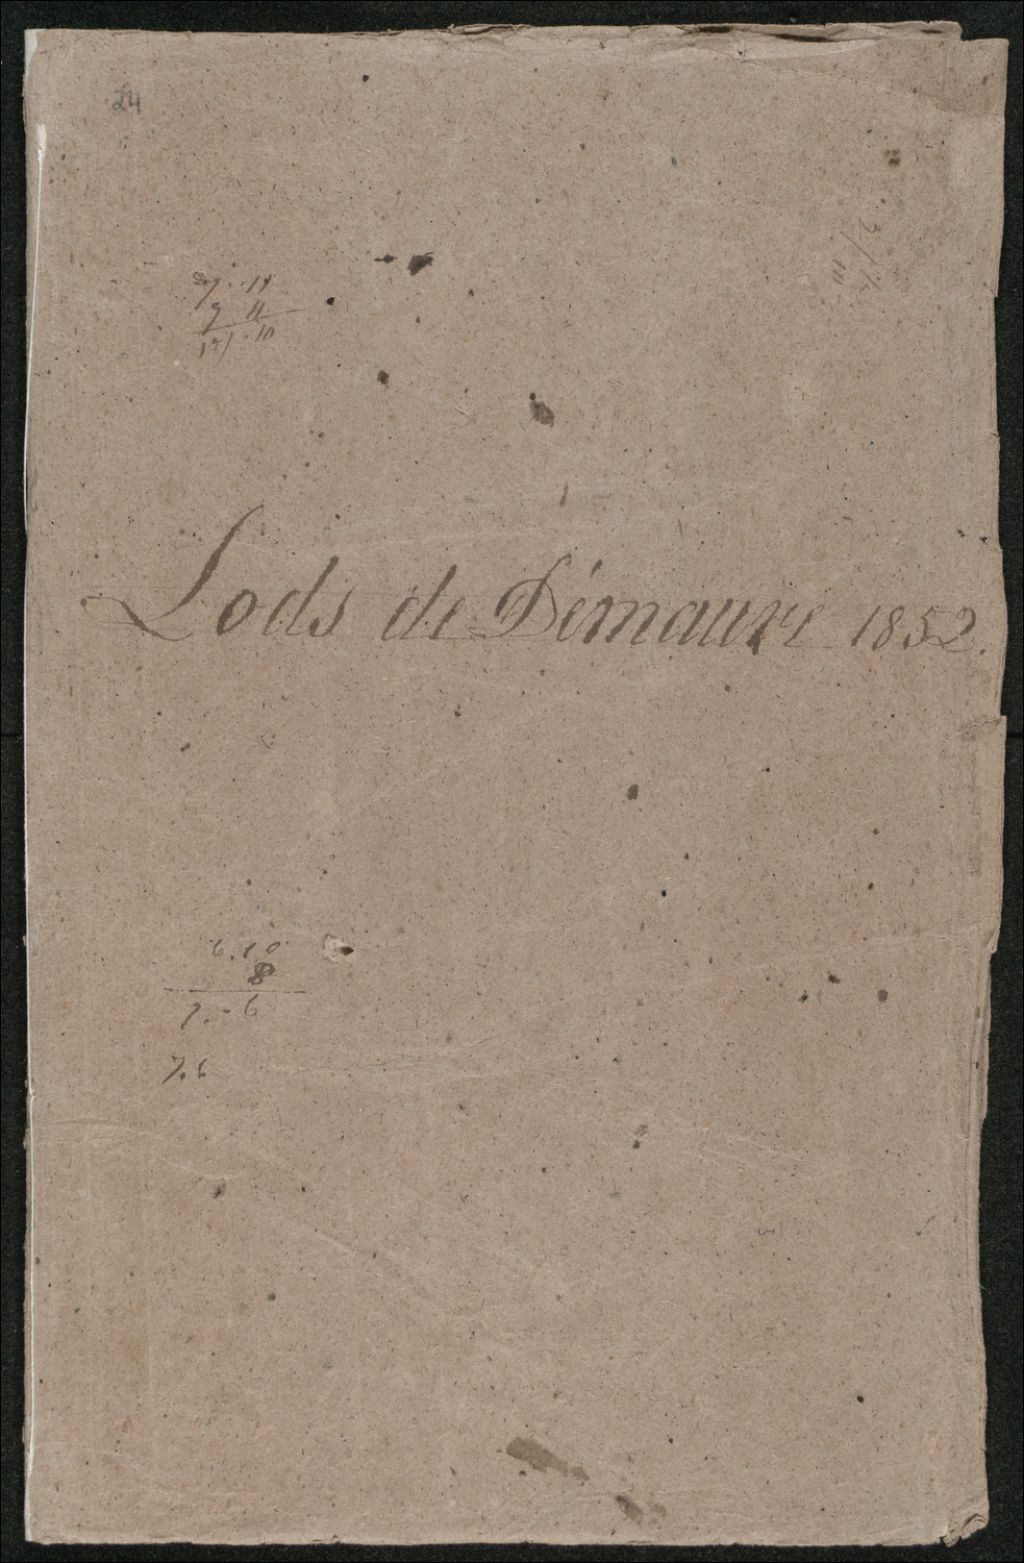 24
7 · 11
9 11
10
Lods de Démaure 1852.
6.10
8
7. - 6
7.6